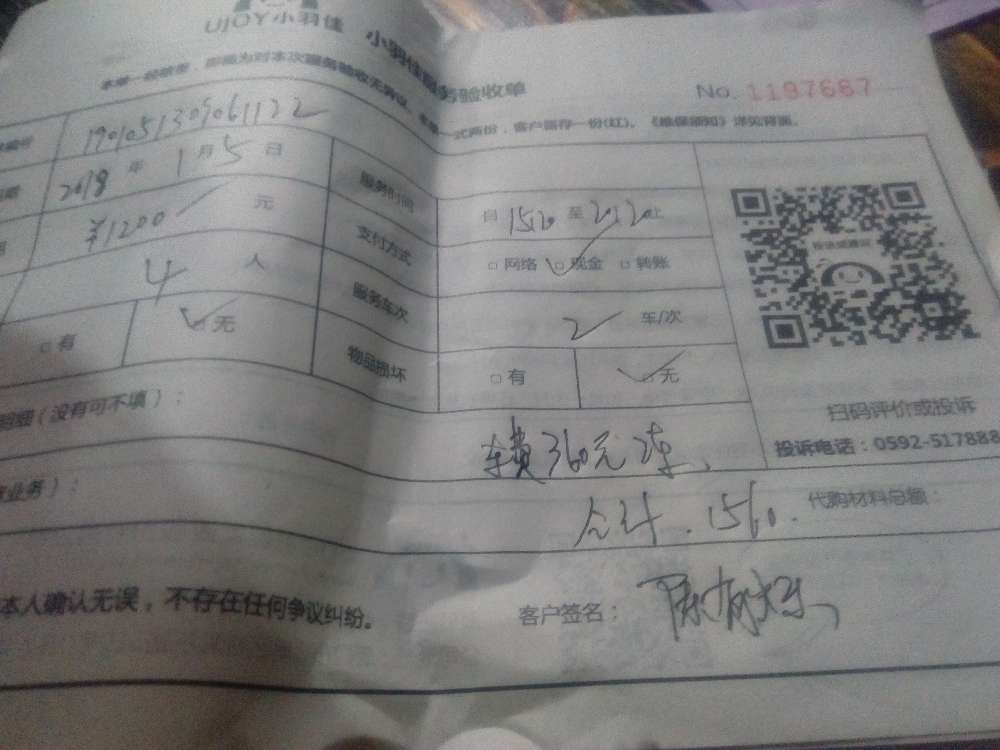 UJOY小羽佳 小羽佳服务验收单
No. 1197687
本单一经签署,即视为对本次服务验收无异议,本单一式两份,客户留存一份(红),《维保须知》详见背面。
1901051309061122
2018年1月5日 服务时间 自15:20至20:20止
¥1200元 支付方式 □网络 □现金 □转账
4人 服务车次 2车/次
□有 □无 物品损坏 □有 □无
扫码评价或投诉
投诉电话:0592-517888
明细(没有可不填):
车费360元2车
业务):
合计.1560. 代购材料总额:
本人确认无误,不存在任何争议纠纷。 客户签名: